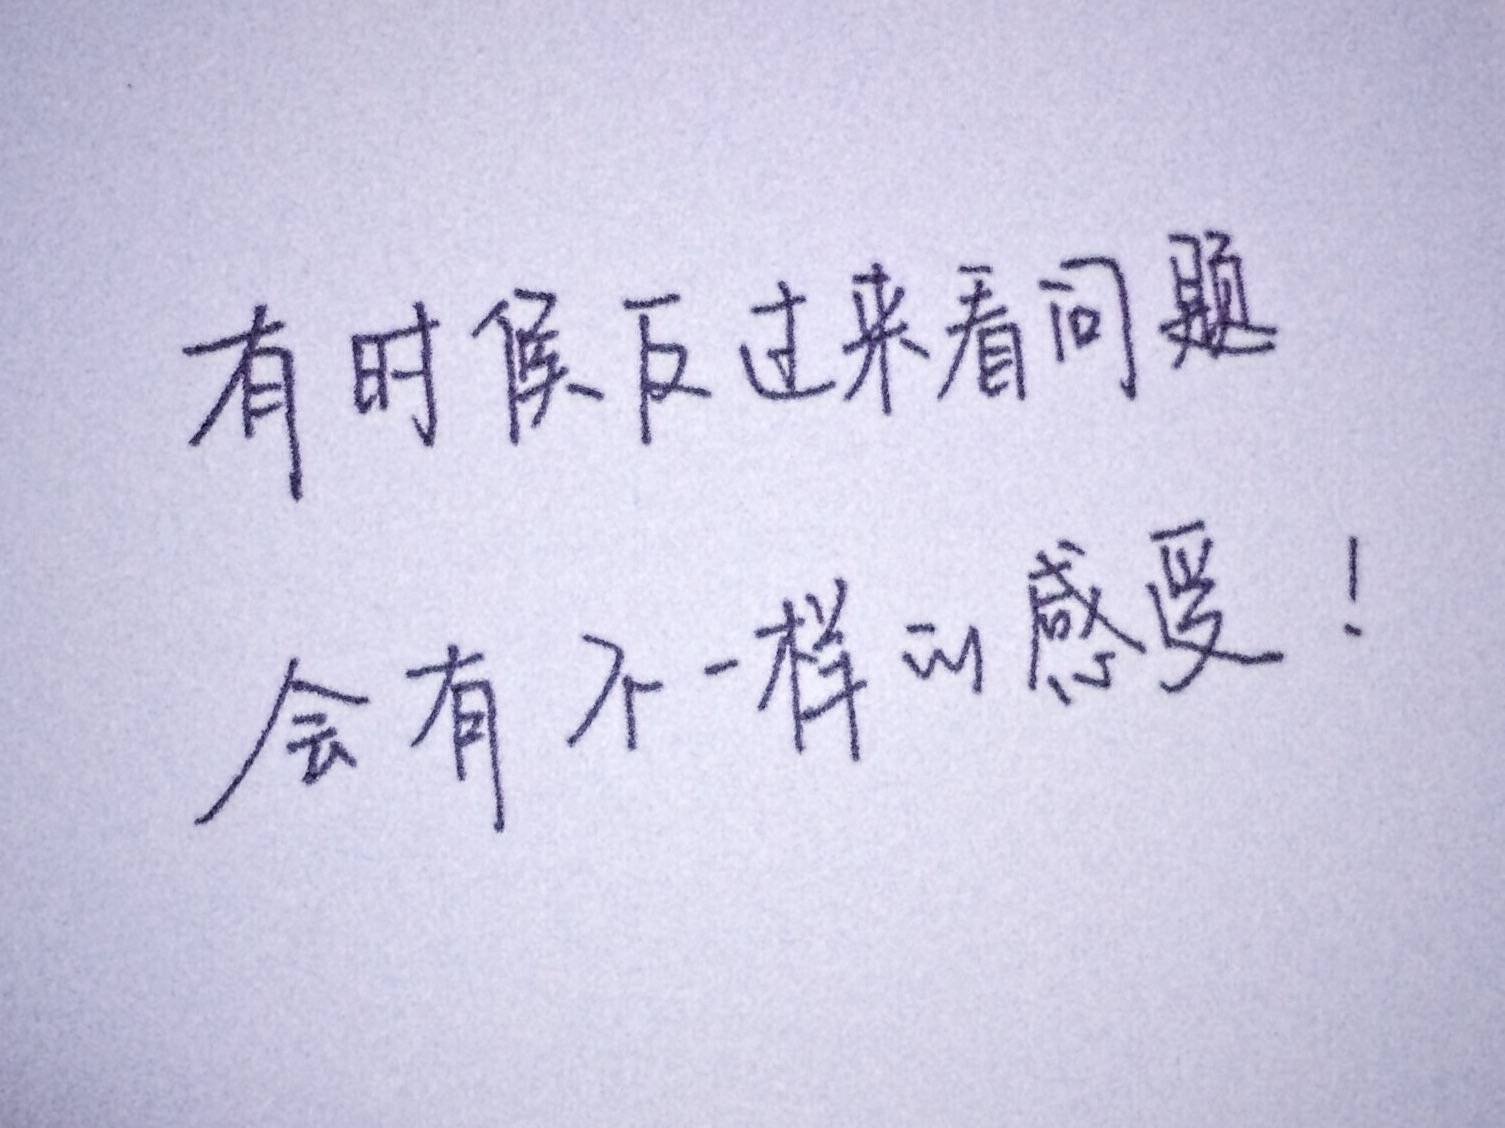 有时候反过来看问题
会有不一样的感受！